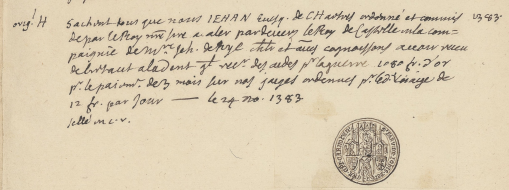 orig. H Sachent tous que nous IEHAN Evesq. de CHartres ordonné et commis 1383.
de par le Roy nre sire a aler par devers le Roy de Castille en la com-
paignie de Mre Joh. de Ryl chlr et avec cognoissons avoir receu
de Bertaut aladent gl. recr. des aides pr. la guerre 1080 fr. d'or
pr. le paiemt. de 3 mois sur nos gages ordennez pr. led. voiage de
12 fr. par Jour — le 24 no. 1383
sellé